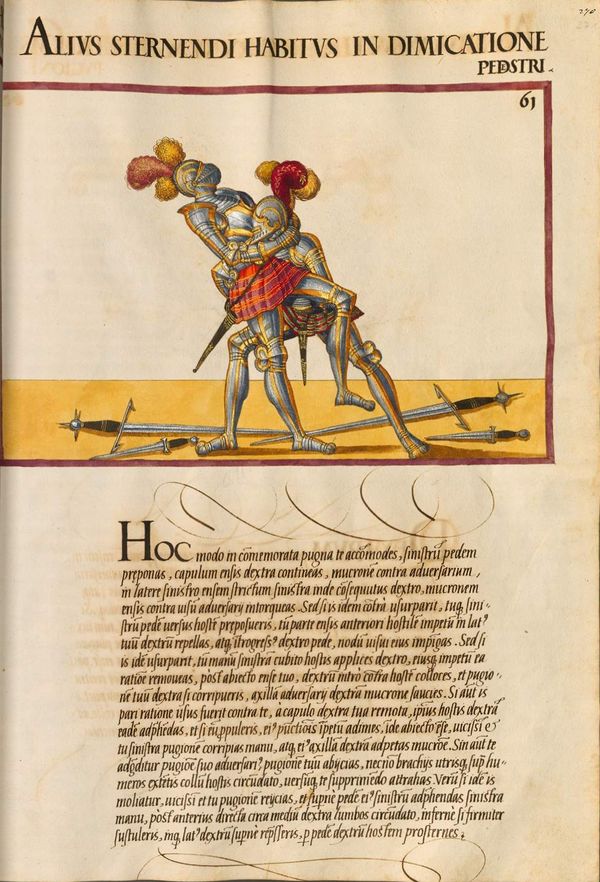 270
ALIVS STERNENDI HABITVS IN DIMICATIONE
PEDSTRI.
61
HOC modo in cõmemorata pugna te accõmodes, sinistrũ pedem
preponas, capulum ensis dextra contineas, mucronẽ contra adversarium,
in latere sinistro ensem strictum sinistra inde cõsequutus dextro, mucronem
ensis contra visũ adversarij intorqueas. Sed si is idem cõtra usurparit, tuq, sini=
strũ pedẽ versus hostẽ preposueris, tũ parte ensis anteriori hostilẽ impetũ in lat9
tuũ dextrũ repellas, atq, ĩtrogress9 dextro pede, nodũ visui eius impĩgas. Sed si
is idẽ usurparit, tu manũ sinistrã cubito hostis applices dextro, eiusq, impetũ ea
ratiõe removeas, post abiecto ense tuo, dextrũ intro cõtra hostẽ colloces, et pugio=
nẽ tuũ dextra si corripueris, axillã adversarij dextrã mucrone saucies. Si aũt is
pari ratione usus fuerit contra te, à capulo dextra tua remota, ipsius hostis dextrã
eadẽ adphẽdas, et si eũ ppuleris, ei9 pũctionis ĩpetũ adimes, idẽ abiecto ẽse, vicissĩ et
tu sinistra pugionẽ corripias manu, atq, ei9 axillã dextrã adpetas mucrõe. Sin aũt te
adgditur pugiõe suo adversari9, pugionẽ tuũ abijcias, necnõ brachijs utrisq, sup hu=
meros extẽtis collũ hostis circũdato, versũq, te supprimẽdo attrahas. Verũ si idẽ is
moliatur, vicissĩ et tu pugionẽ reijcias, et supnè pedẽ ei9 sinistrũ adphendas sinistra
manu, post anterius directa circa mediũ dextra lumbos circũdato, infernè si firmiter
sustuleris, inq, lat9 dextrũ supnè rep̃sseris, p pedẽ dextrũ hostem prosternes.